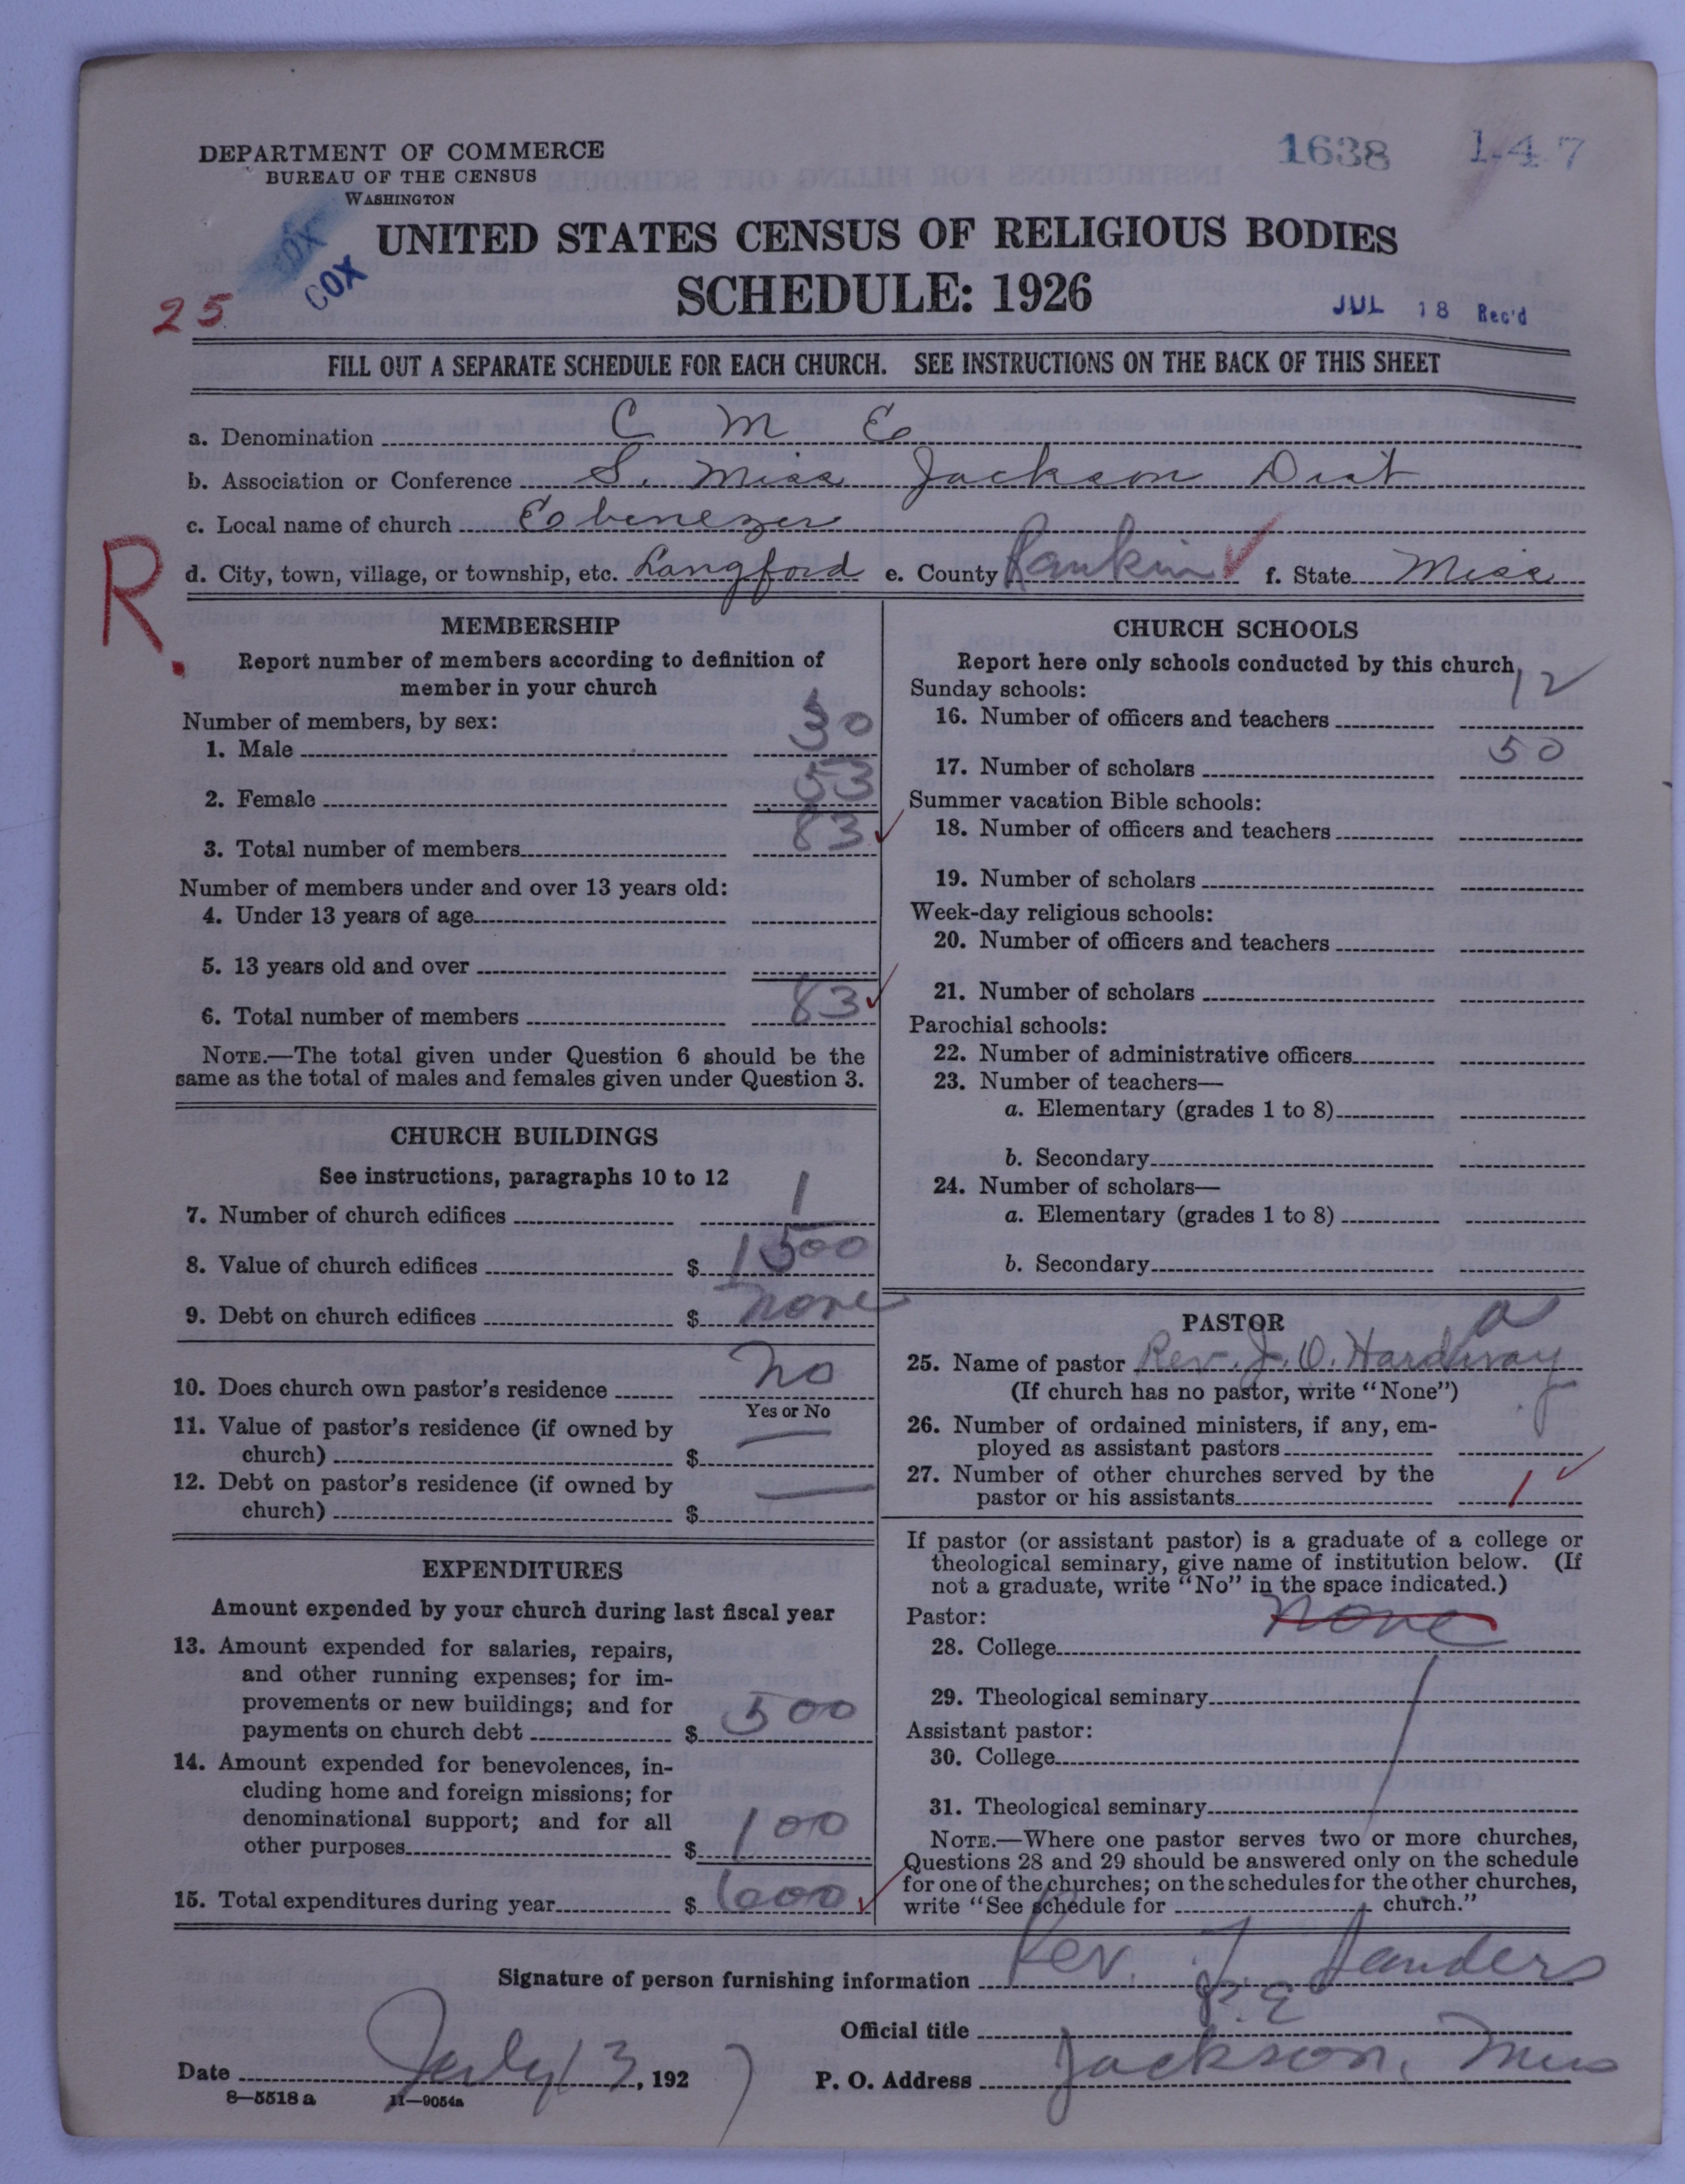 DEPARTMENT OF COMMERCE
BUREAU OF THE CENSUS
WASHINGTON
1638 147
COX
COX
UNITED STATES CENSUS OF RELIGIOUS BODIES
SCHEDULE: 1926
25
JUL 18 Rec'd
FILL OUT A SEPARATE SCHEDULE FOR EACH CHURCH. SEE INSTRUCTIONS ON THE BACK OF THIS SHEET
a. Denomination C M E
b. Association or Conference S. Miss Jackson Dist
c. Local name of church Ebenezer
R.
d. City, town, village, or township, etc. Langford e. County Rankin ✓ f. State Miss
MEMBERSHIP
Report number of members according to definition of
member in your church
Number of members, by sex:
1. Male 30
2. Female 53
3. Total number of members 83 ✓
Number of members under and over 13 years old:
4. Under 13 years of age
5. 13 years old and over
6. Total number of members 83 ✓
NOTE.—The total given under Question 6 should be the
same as the total of males and females given under Question 3.
CHURCH BUILDINGS
See instructions, paragraphs 10 to 12
7. Number of church edifices 1
8. Value of church edifices $ 1500
9. Debt on church edifices $ none
10. Does church own pastor's residence no
Yes or No
11. Value of pastor's residence (if owned by
church) $ —
12. Debt on pastor's residence (if owned by
church) $ —
EXPENDITURES
Amount expended by your church during last fiscal year
13. Amount expended for salaries, repairs,
and other running expenses; for im-
provements or new buildings; and for
payments on church debt $ 500
14. Amount expended for benevolences, in-
cluding home and foreign missions; for
denominational support; and for all
other purposes $ 100
15. Total expenditures during year $ 600 ✓
CHURCH SCHOOLS
Report here only schools conducted by this church
Sunday schools:
16. Number of officers and teachers 12
17. Number of scholars 50
Summer vacation Bible schools:
18. Number of officers and teachers
19. Number of scholars
Week-day religious schools:
20. Number of officers and teachers
21. Number of scholars
Parochial schools:
22. Number of administrative officers
23. Number of teachers—
a. Elementary (grades 1 to 8)
b. Secondary
24. Number of scholars—
a. Elementary (grades 1 to 8)
b. Secondary
PASTOR a
25. Name of pastor Rev. J. O. Hardway
(If church has no pastor, write "None")
26. Number of ordained ministers, if any, em-
ployed as assistant pastors
27. Number of other churches served by the
pastor or his assistants 1 ✓
If pastor (or assistant pastor) is a graduate of a college or
theological seminary, give name of institution below. (If
not a graduate, write "No" in the space indicated.)
Pastor:
28. College none
29. Theological seminary
Assistant pastor:
30. College
31. Theological seminary
NOTE.—Where one pastor serves two or more churches,
Questions 28 and 29 should be answered only on the schedule
for one of the churches; on the schedules for the other churches,
write "See schedule for church."
Signature of person furnishing information Rev. J. Sanders
Official title P. E.
Date July 13, 1927 P. O. Address Jackson, Miss
8—5518 a 11—9054a